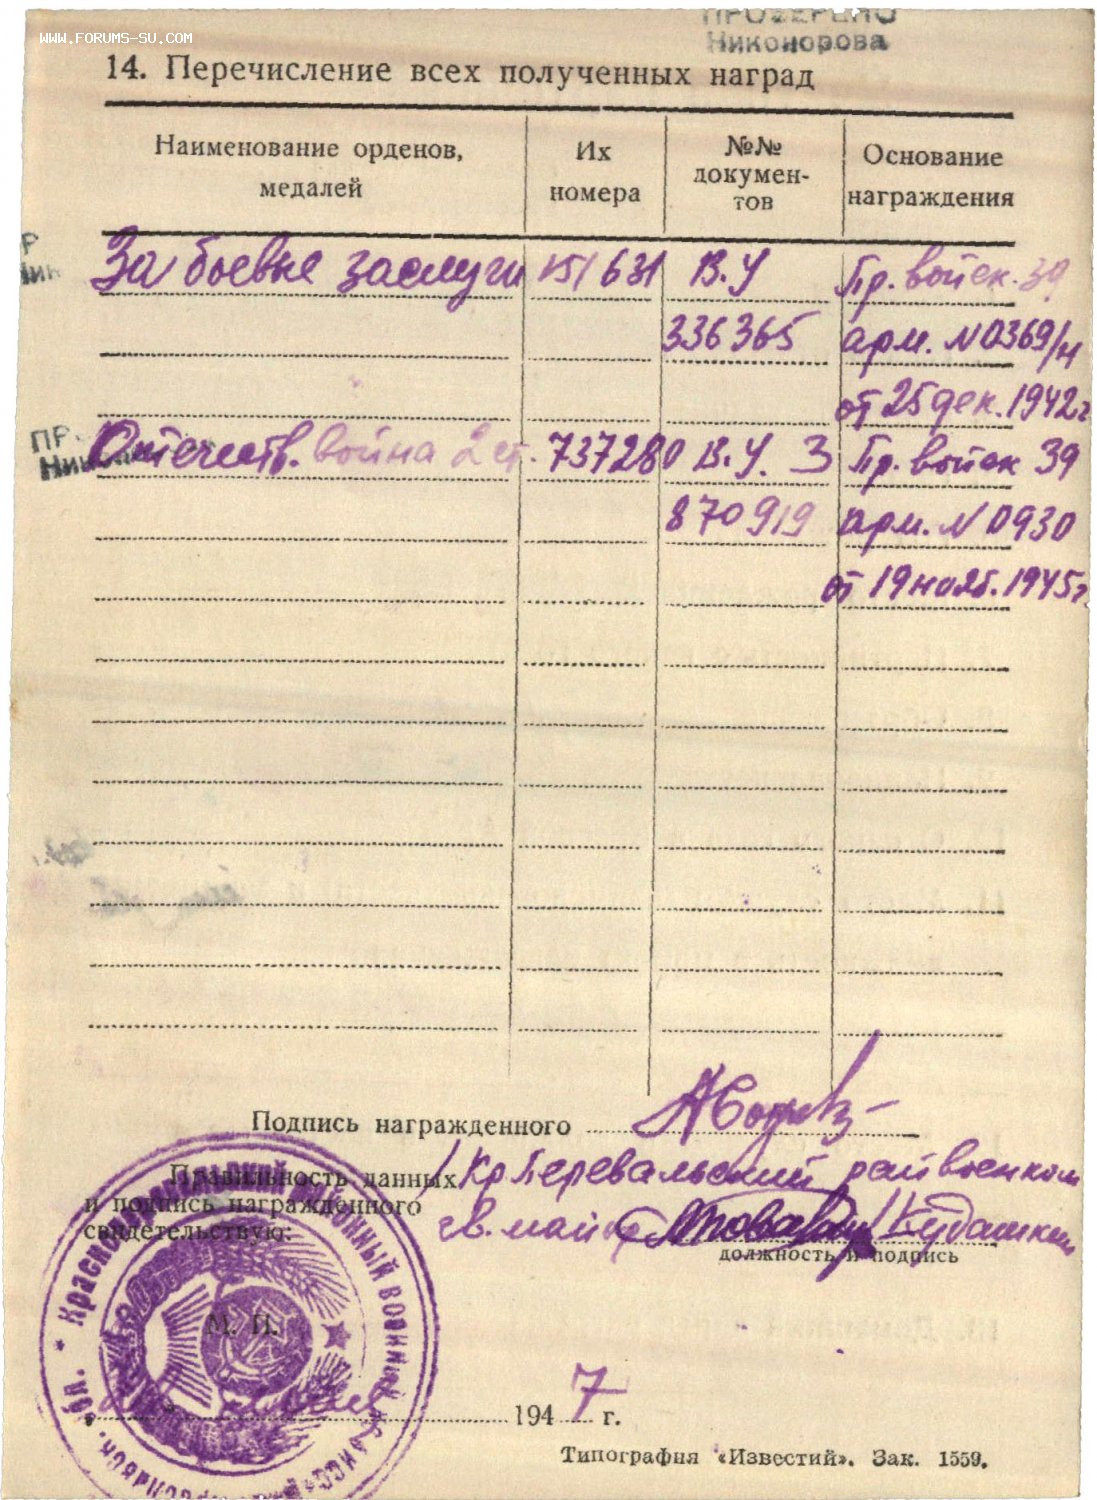 WWW.FORUMS-SU.COM
ПРОВЕРЕНО
Никонорова
14. Перечисление всех полученных наград
Наименование орденов, медалей
Их номера
№№ докумен-тов
Основание награждения
За боевые заслуги 151631 В.У Пр. войск. 39
336365 арм. N 0369/н
от 25 дек. 1942 г
Отечеств. война 2 ст. 737280 В.У. З Пр. войск 39
870919 арм. N 0930
от 19 нояб. 1945 г
Подпись награжденного
Правильность данных и подпись награжденного свидетельствую:
Кр Перевальский райвоенком
гв. майор Кудашкин
должность и подпись
М. П.
1947 г.
Типография «Известий». Зак. 1559.